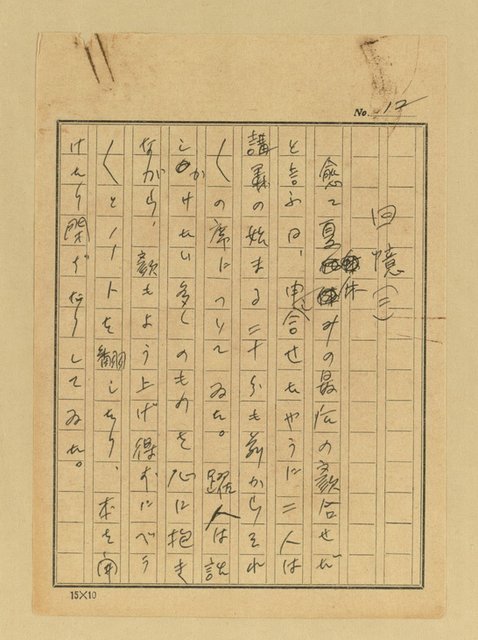 No. 12
回憶(三)
愈々夏休みの最后の顔合せだ
と言ふ日、申合せたやうに二人は
講義の始まる二十分も前からそれ
〲の席についてゐた。躍人は話
しかけたい多くのものを心に抱き
ながら、顔もよう上げ得ずにペラ
〱とノートを翻したり、本を開
けたり閉ぢたりしてゐた。
15×10